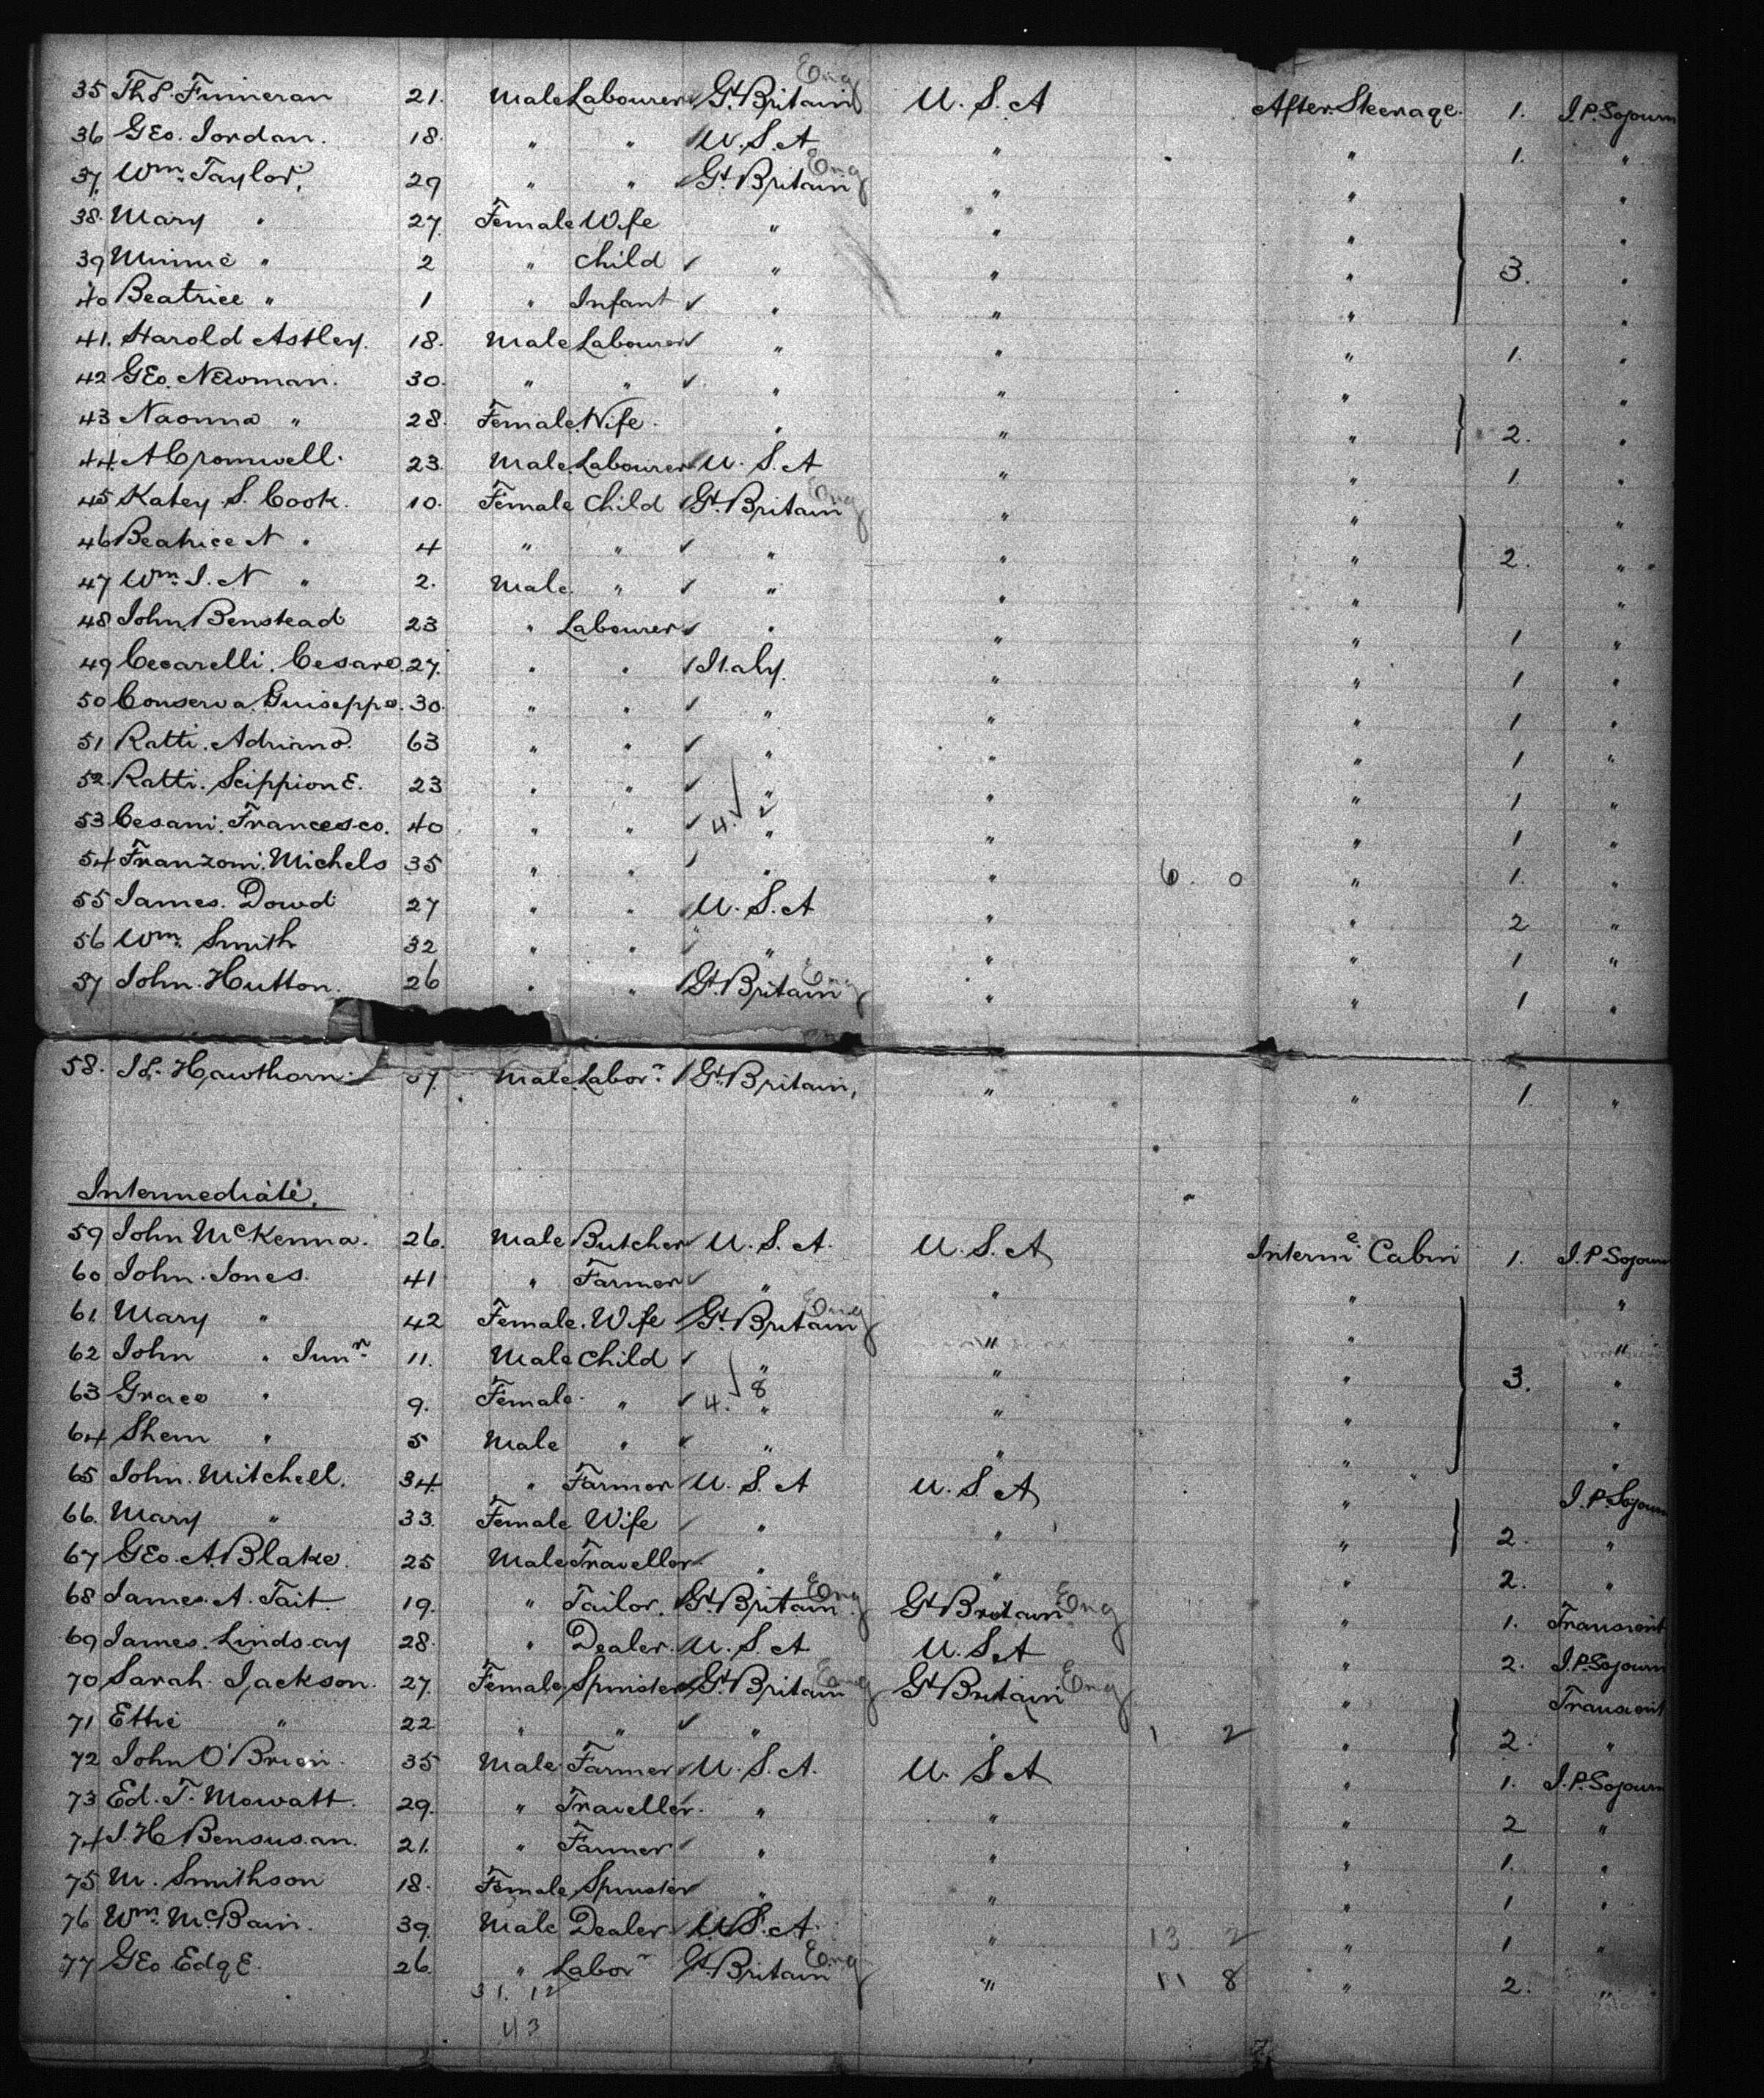 35 Th.s Finneran 21. Male Labourer Gt. Britain Eng U. S. A After Steerage. 1. I. P. Sojourn
36 Geo. Jordan. 18. " " U. S. A " " 1. "
37. Wm. Taylor. 29 " " Gt. Britain Eng " " "
38. Mary " 27. Female Wife " " " "
39 Minnie " 2 " Child " " " 3. "
40 Beatrice " 1 " Infant " " " "
41. Harold Astley. 18. Male Labourer " " " 1. "
42 Geo. Newman. 30. " " " " " "
43 Naomia " 28. Female Wife. " " " 2. "
44. A Cromwell. 23. Male Labourer U. S. A " " 1. "
45 Katey S. Cook. 10. Female Child Gt. Britain Eng " " "
46 Beatrice N " 4 " " " " " 2. "
47 Wm. J. N " 2. Male. " " " " "
48 John Benstead 23 " Labourer " " " 1 "
49 Cecarelli. Cesare. 27. " " Italy. " " 1 "
50 Conserva. Guiseppe. 30. " " " " " 1 "
51 Ratti. Adriano. 63 " " " " " 1 "
52. Ratti. Scippione. 23 " " " " " 1 "
53 Cesani. Francesco. 40 " " 4. " " " 1 "
54 Franzoni. Michele 35 " " " " 6. 0 " 1. "
55 James. Dowd 27 " " U. S. A " " 2 "
56 Wm. Smith 32 " " " " " 1 "
57 John. Hutton. 26 " " Gt. Britain Eng " " 1 "
58. Hawthorn. Male Labor. Gt. Britain, " " 1. "
Intermediate.
59 John McKenna. 26. Male Butcher U. S. A. U. S. A Interme. Cabin 1. I. P. Sojourn
60 John. Jones. 41 " Farmer " " " "
61 Mary " 42 Female. Wife Gt. Britain Eng " " "
62 John " Junr. 11. Male Child " " " 3. "
63 Grace " 9. Female " 4. 8 " " " "
64 Shem " 5 Male " " " " "
65 John. Mitchell. 34 " Farmer U. S. A U. S. A " I. P. Sojourn
66. Mary " 33. Female Wife " " " 2. "
67 Geo. A. Blake. 25 Male Traveller " " " 2. "
68 James. A. Tait. 19. " Tailor. Gt. Britain Eng Gt Britain Eng " 1. Transient
69 James. Lindsay 28. " Dealer. U. S. A U. S. A " 2. I. P. Sojourn
70 Sarah. Jackson. 27. Female. Spinster Gt. Britain Eng Gt Britain Eng " Transient
71 Ettie " 22 " " " " 1 2 " 2. "
72 John O'Brien. 35 Male Farmer U. S. A. U. S. A " 1. I. P. Sojourn
73 Ed. T. Mowatt. 29. " Traveller. " " " 2 "
74 J. H Bensusan. 21. " Farmer " " " 1. "
75 M. Smithson 18. Female Spinster " " " 1 "
76 Wm. McBain. 39. Male Dealer. U. S. A. " 13 2 " 1 "
77 Geo. Edge. 26. " Labor Gt. Britain Eng " 11 8 " 2. "
31. 12
43